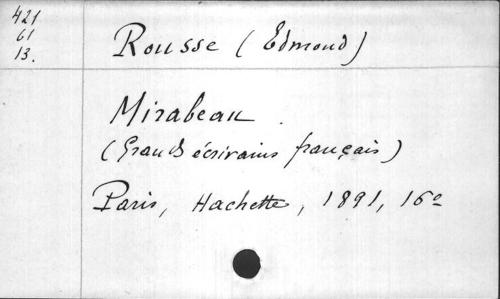 421
61
13.
Rousse (Edmond)
Mirabeau.
(Grands écrivains français)
Paris, Hachette, 1891, 16º